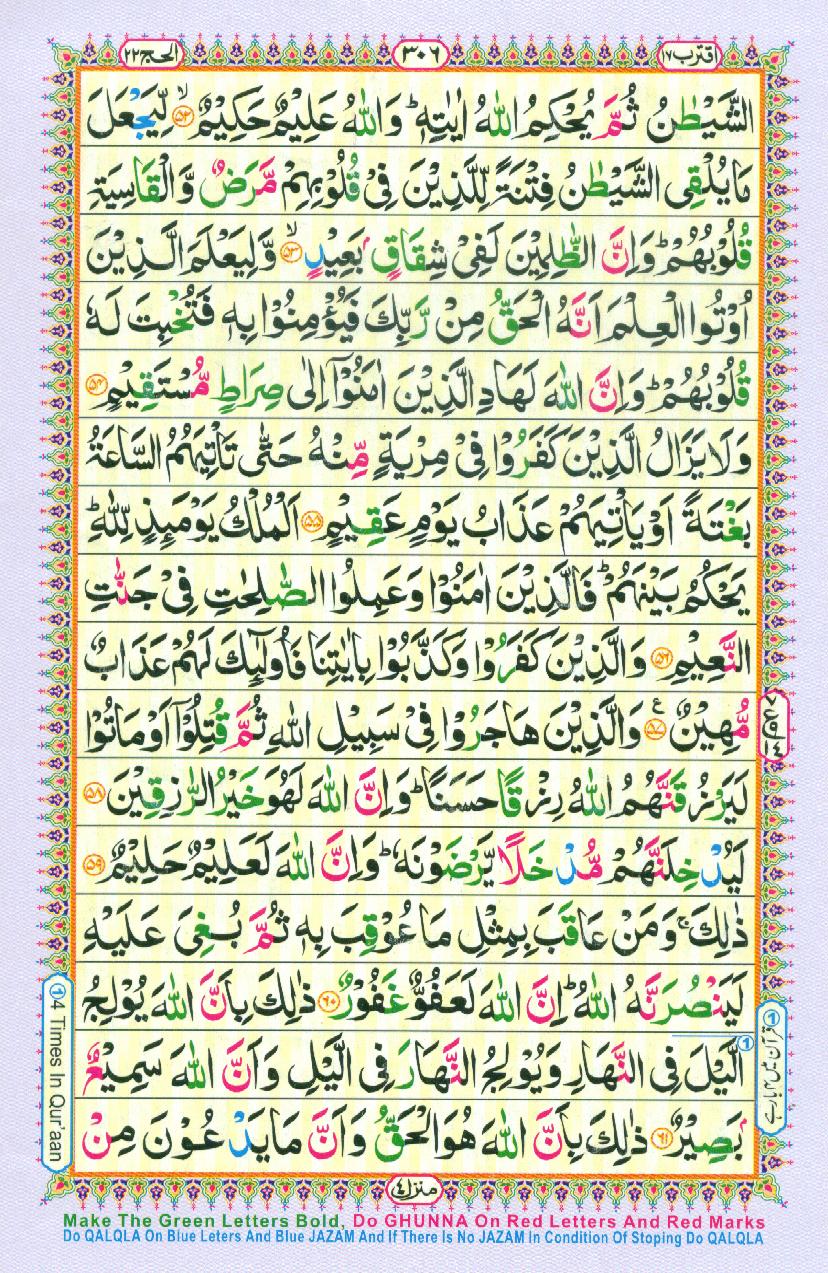 اقترب ١٧
٣٠٦
الحج ٢٢
الشَّيْطٰنُ ثُمَّ يُحْكِمُ اللّٰهُ اٰيٰتِهٖ ؕ وَاللّٰهُ عَلِيْمٌ حَكِيْمٌ ۙ﴿۵۲﴾ لِّيَجْعَلَ
مَا يُلْقِى الشَّيْطٰنُ فِتْنَةً لِّلَّذِيْنَ فِىْ قُلُوْبِهِمْ مَّرَضٌ وَّالْقَاسِيَةِ
قُلُوْبُهُمْ ؕ وَاِنَّ الظّٰلِمِيْنَ لَفِىْ شِقَاقٍۭ بَعِيْدٍ ۙ﴿۵۳﴾ وَّلِيَعْلَمَ الَّذِيْنَ
اُوْتُوا الْعِلْمَ اَنَّهُ الْحَقُّ مِنْ رَّبِّكَ فَيُؤْمِنُوْا بِهٖ فَتُخْبِتَ لَهٗ
قُلُوْبُهُمْ ؕ وَاِنَّ اللّٰهَ لَهَادِ الَّذِيْنَ اٰمَنُوْۤا اِلٰى صِرَاطٍ مُّسْتَقِيْمٍ ﴿۵۴﴾
وَلَا يَزَالُ الَّذِيْنَ كَفَرُوْا فِىْ مِرْيَةٍ مِّنْهُ حَتّٰى تَاْتِيَهُمُ السَّاعَةُ
بَغْتَةً اَوْ يَاْتِيَهُمْ عَذَابُ يَوْمٍ عَقِيْمٍ ﴿۵۵﴾ اَلْمُلْكُ يَوْمَئِذٍ لِّلّٰهِ ؕ
يَحْكُمُ بَيْنَهُمْ ؕ فَالَّذِيْنَ اٰمَنُوْا وَعَمِلُوا الصّٰلِحٰتِ فِىْ جَنّٰتِ
النَّعِيْمِ ﴿۵۶﴾ وَالَّذِيْنَ كَفَرُوْا وَكَذَّبُوْا بِاٰيٰتِنَا فَاُولٰٓئِكَ لَهُمْ عَذَابٌ
مُّهِيْنٌ ﴿۵۷﴾ ع وَالَّذِيْنَ هَاجَرُوْا فِىْ سَبِيْلِ اللّٰهِ ثُمَّ قُتِلُوْۤا اَوْ مَاتُوْا
لَيَرْزُقَنَّهُمُ اللّٰهُ رِزْقًا حَسَنًا ؕ وَاِنَّ اللّٰهَ لَهُوَ خَيْرُ الرّٰزِقِيْنَ ﴿۵۸﴾
لَيُدْخِلَنَّهُمْ مُّدْخَلًا يَّرْضَوْنَهٗ ؕ وَاِنَّ اللّٰهَ لَعَلِيْمٌ حَلِيْمٌ ﴿۵۹﴾
ذٰلِكَ ۚ وَمَنْ عَاقَبَ بِمِثْلِ مَا عُوْقِبَ بِهٖ ثُمَّ بُغِىَ عَلَيْهِ
لَيَنْصُرَنَّهُ اللّٰهُ ؕ اِنَّ اللّٰهَ لَعَفُوٌّ غَفُوْرٌ ﴿۶۰﴾ ذٰلِكَ بِاَنَّ اللّٰهَ يُوْلِجُ
الَّيْلَ فِى النَّهَارِ وَيُوْلِجُ النَّهَارَ فِى الَّيْلِ وَاَنَّ اللّٰهَ سَمِيْعٌۢ
بَصِيْرٌ ﴿۶۱﴾ ذٰلِكَ بِاَنَّ اللّٰهَ هُوَ الْحَقُّ وَاَنَّ مَا يَدْعُوْنَ مِنْ
① 4 Times In Qur'aan
منزل ٤
Make The Green Letters Bold, Do GHUNNA On Red Letters And Red Marks
Do QALQLA On Blue Leters And Blue JAZAM And If There Is No JAZAM In Condition Of Stoping Do QALQLA